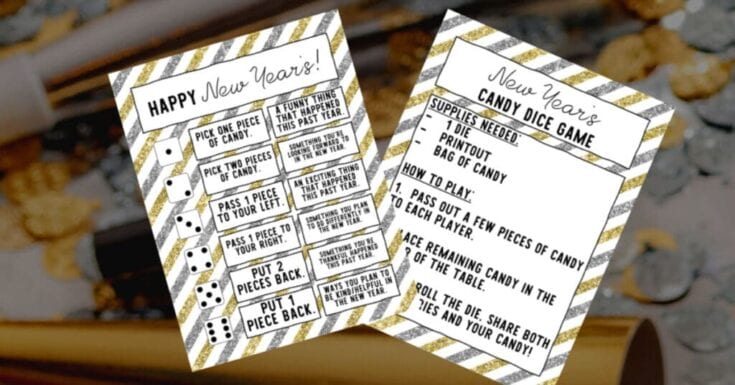 HAPPY New Year's!
PICK ONE PIECE
OF CANDY.
A FUNNY THING
THAT HAPPENED
THIS PAST YEAR.
PICK TWO PIECES
OF CANDY.
SOMETHING YOU'RE
LOOKING FORWARD TO
IN THE NEW YEAR.
PASS 1 PIECE
TO YOUR LEFT.
AN EXCITING THING
THAT HAPPENED
THIS PAST YEAR.
PASS 1 PIECE TO
YOUR RIGHT.
SOMETHING YOU PLAN
TO DO DIFFERENTLY IN
THE NEW YEAR.
PUT 2
PIECES BACK.
SOMETHING YOU'RE
THANKFUL HAPPENED
THIS PAST YEAR.
PUT 1
PIECE BACK.
WAYS YOU PLAN TO
BE KIND/HELPFUL IN
THE NEW YEAR.
New Year's
CANDY DICE GAME
SUPPLIES NEEDED:
- 1 DIE
- PRINTOUT
- BAG OF CANDY
HOW TO PLAY:
1. PASS OUT A FEW PIECES OF CANDY
TO EACH PLAYER.
REMAINING CANDY IN THE
OF THE TABLE.
ROLL THE DIE, SHARE BOTH
AND YOUR CANDY!